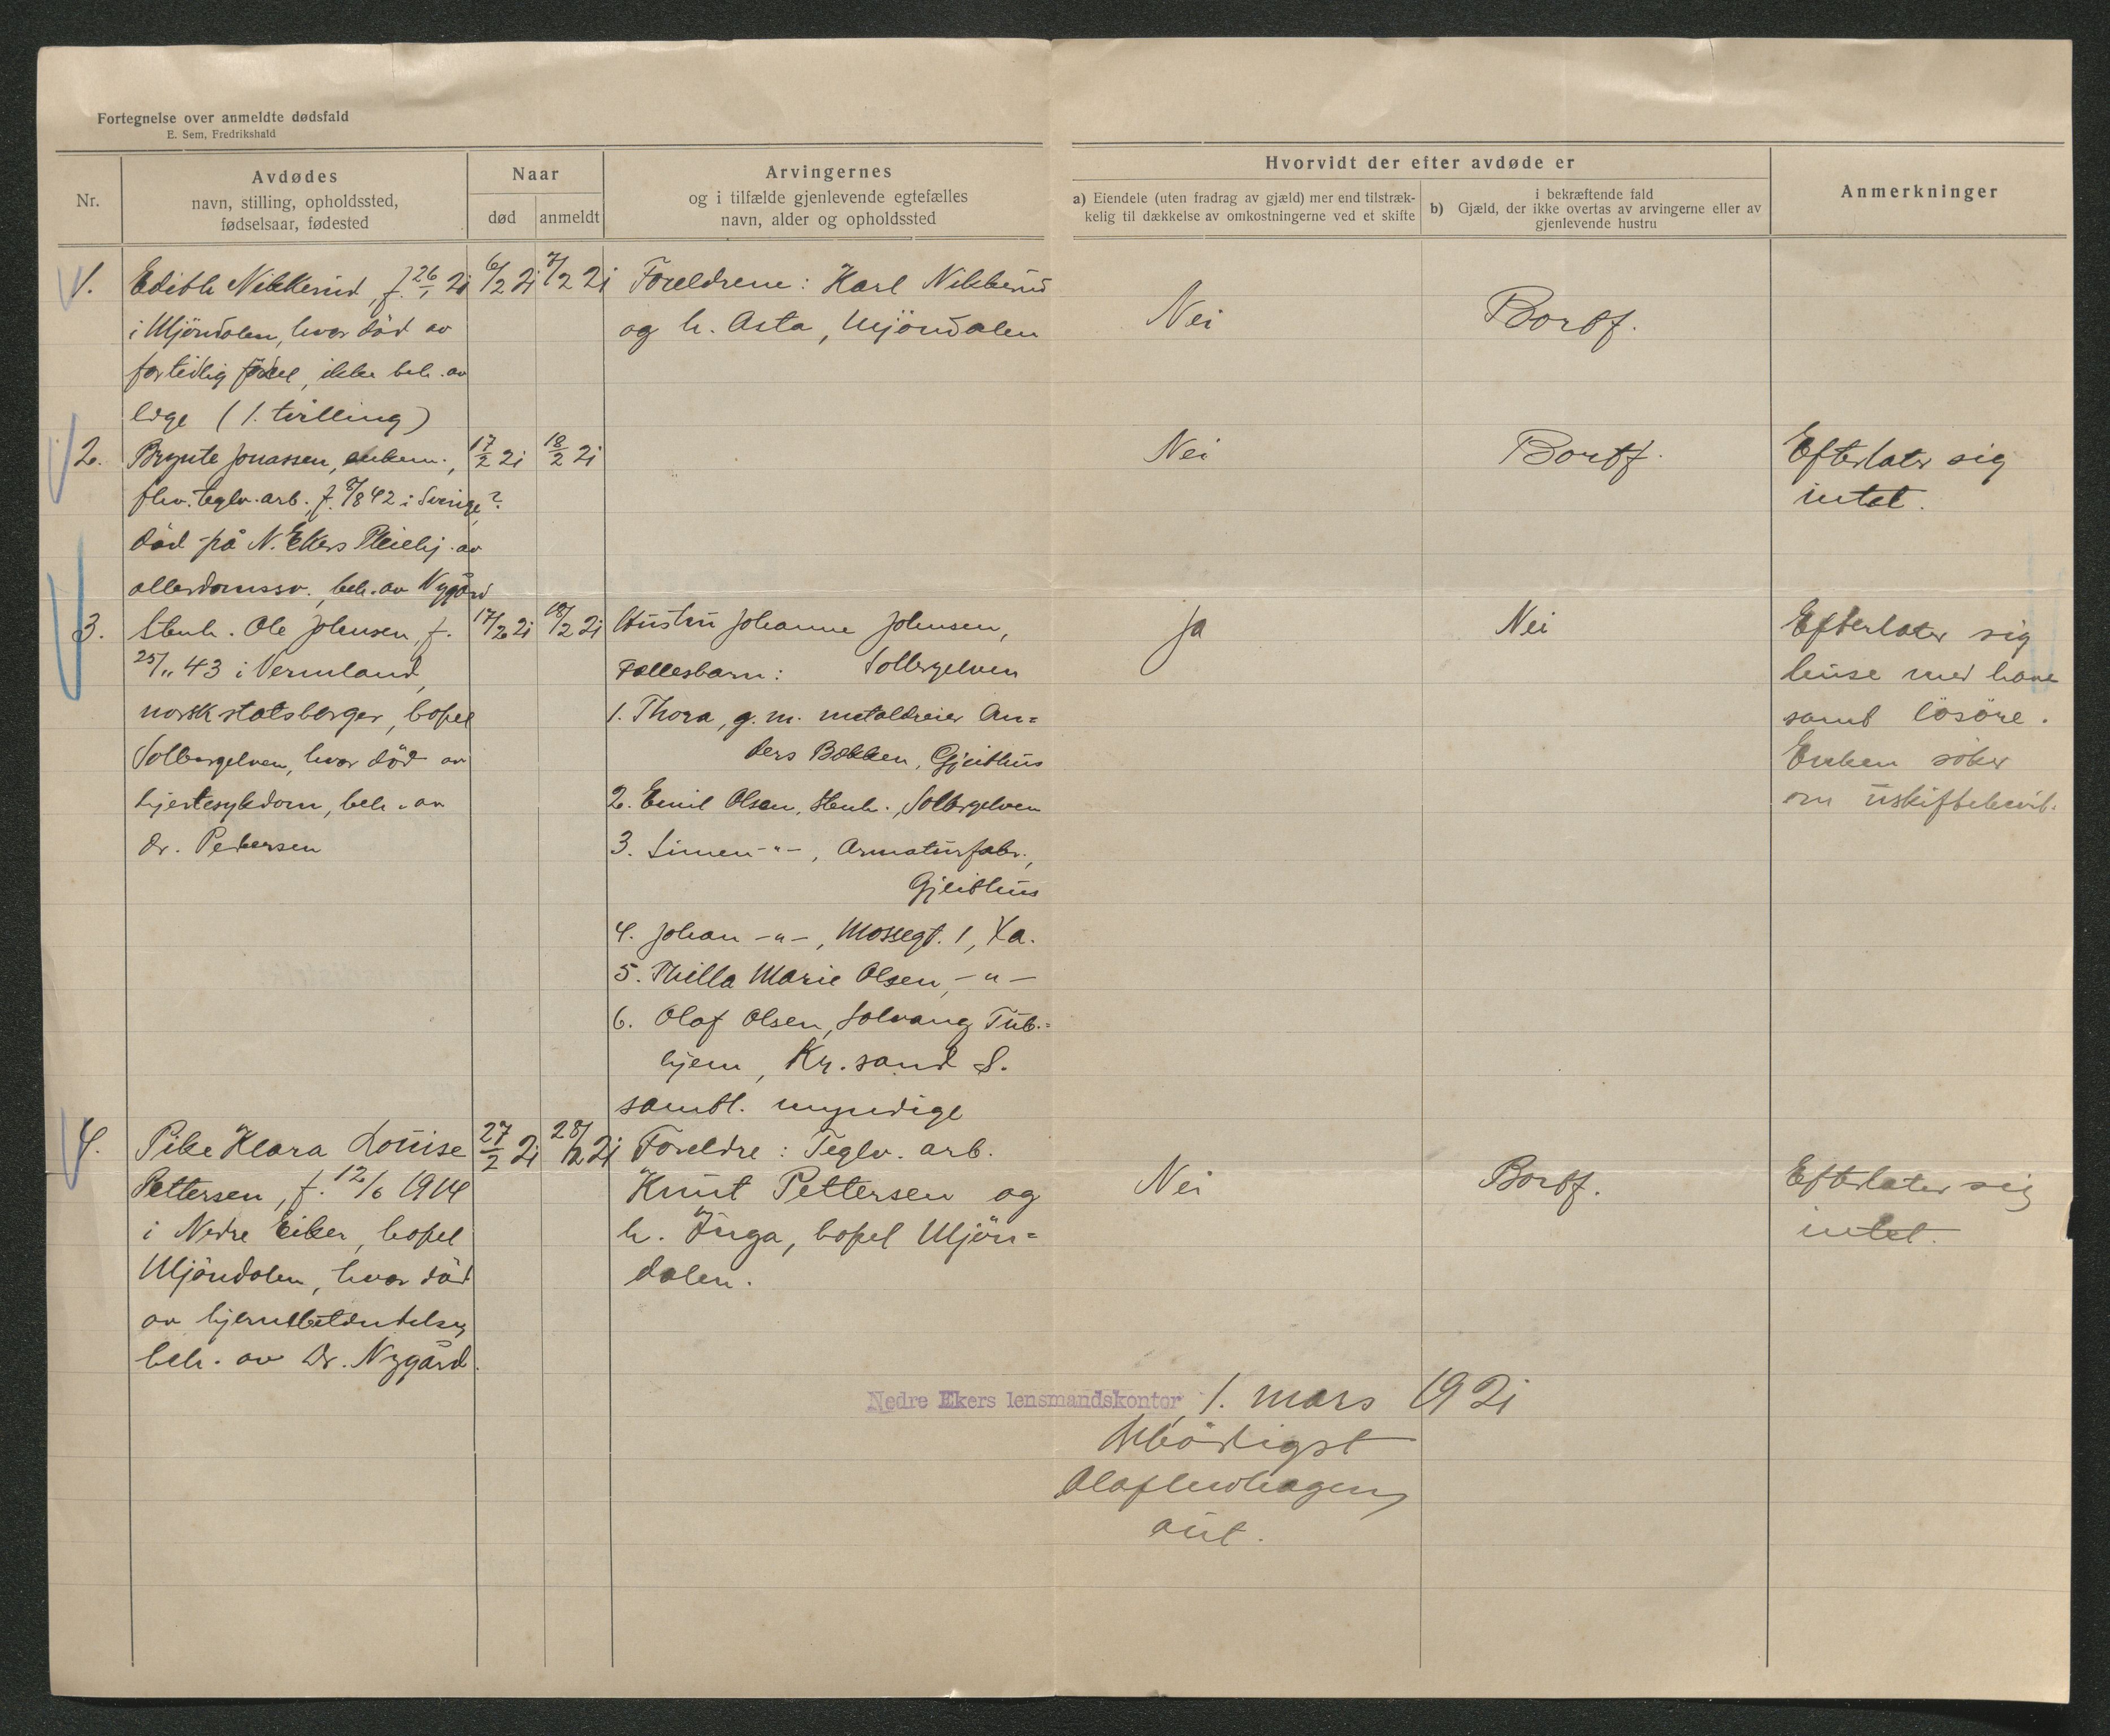 Fortegnelse over anmeldte dødsfald
E. Sem, Fredrikshald
Nr.
Avdødes
navn, stilling, opholdssted,
fødselsaar, fødested
Naar
død
anmeldt
Arvingernes
og i tilfælde gjenlevende egtefælles
navn, alder og opholdssted
Hvorvidt der efter avdøde er
a) Eiendele (uten fradrag av gjæld) mer end tilstræk-
kelig til dækkelse av omkostningerne ved et skifte
i bekræftende fald
b) Gjæld, der ikke overtas av arvingerne eller av
gjenlevende hustru
Anmerkninger
1.
Edith Nikkerud, f. 26/1 21
i Mjöndalen, hvor död av
for tidlig födsel, ikke beh. av
læge (1. tvilling)
6/2 21
7/2 21
Foreldrene: Karl Nikkerud
og h. Asta, Mjöndalen
Nei
Bortf.
2.
Brynte Jonassen, enkem.,
fhv. teglv. arb., f. 8/8 42 i Sverige?
död på N. Ekers Pleiehj. av
alderdomssv., beh. av Nygård
17/2 21
18/2 21
Nei
Bortf.
Efterlater sig
intet.
3.
Stenh. Ole Johnsen, f.
25/11 43 i Vermland,
norsk statsborger, bopel
Solbergelven, hvor död av
hjertesykdom, beh. av
dr. Pedersen
17/2 21
18/2 21
Hustru Johanne Johnsen,
Fællesbarn: Solbergelven
1. Thora, g. m. metaldreier An=
ders Bakken, Gjeithus
2. Emil Olsen, stenh., Solbergelven
3. Simen -"-, Armaturfabr.,
Gjeithus
4. Johan -"-, Mossegt. 1, Kra.
5. Thilla Marie Olsen, -"-
6. Olaf Olsen, Solvang Tub.=
hjem, Kr.sand S.
samtl. myndige
Ja
Nei
Efterlater sig
huse med have
samt lösöre.
Enken söker
om uskiftebevil.
4.
Pike Klara Louise
Pettersen, f. 12/6 1914
i Nedre Eiker, bopel
Mjöndalen, hvor död
av hjernebetændelse,
beh. av Dr. Nygård.
27/2 21
28/2 21
Foreldre: Teglv. arb.
Knut Pettersen og
h. Inga, bopel Mjön=
dalen.
Nei
Bortf.
Efterlater sig
intet.
Nedre Ekers lensmandskontor, 1. mars 1921
Ærbödigst
aut.